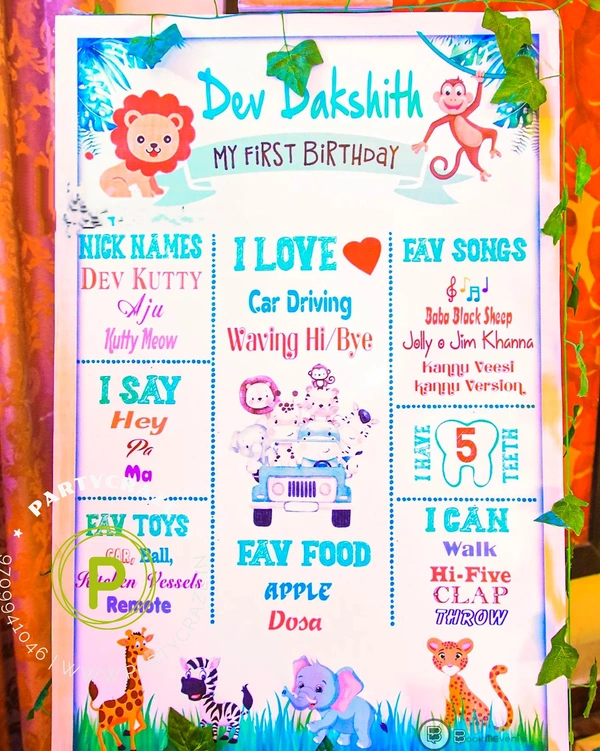 Dev Dakshith
MY FIRST BIRTHDAY
NICK NAMES
DEV KUTTY
Aju
Kutty Meow
I SAY
Hey
Pa
Ma
FAV TOYS
CAR, Ball,
Kitchen Vessels
Remote
I LOVE
Car Driving
Waving Hi/Bye
FAV FOOD
APPLE
Dosa
FAV SONGS
Baba Black Sheep
Jolly o Jim Khanna
Kannu Veesi
Kannu Version
I HAVE
5
TEETH
I CAN
Walk
Hi-Five
CLAP
THROW
P